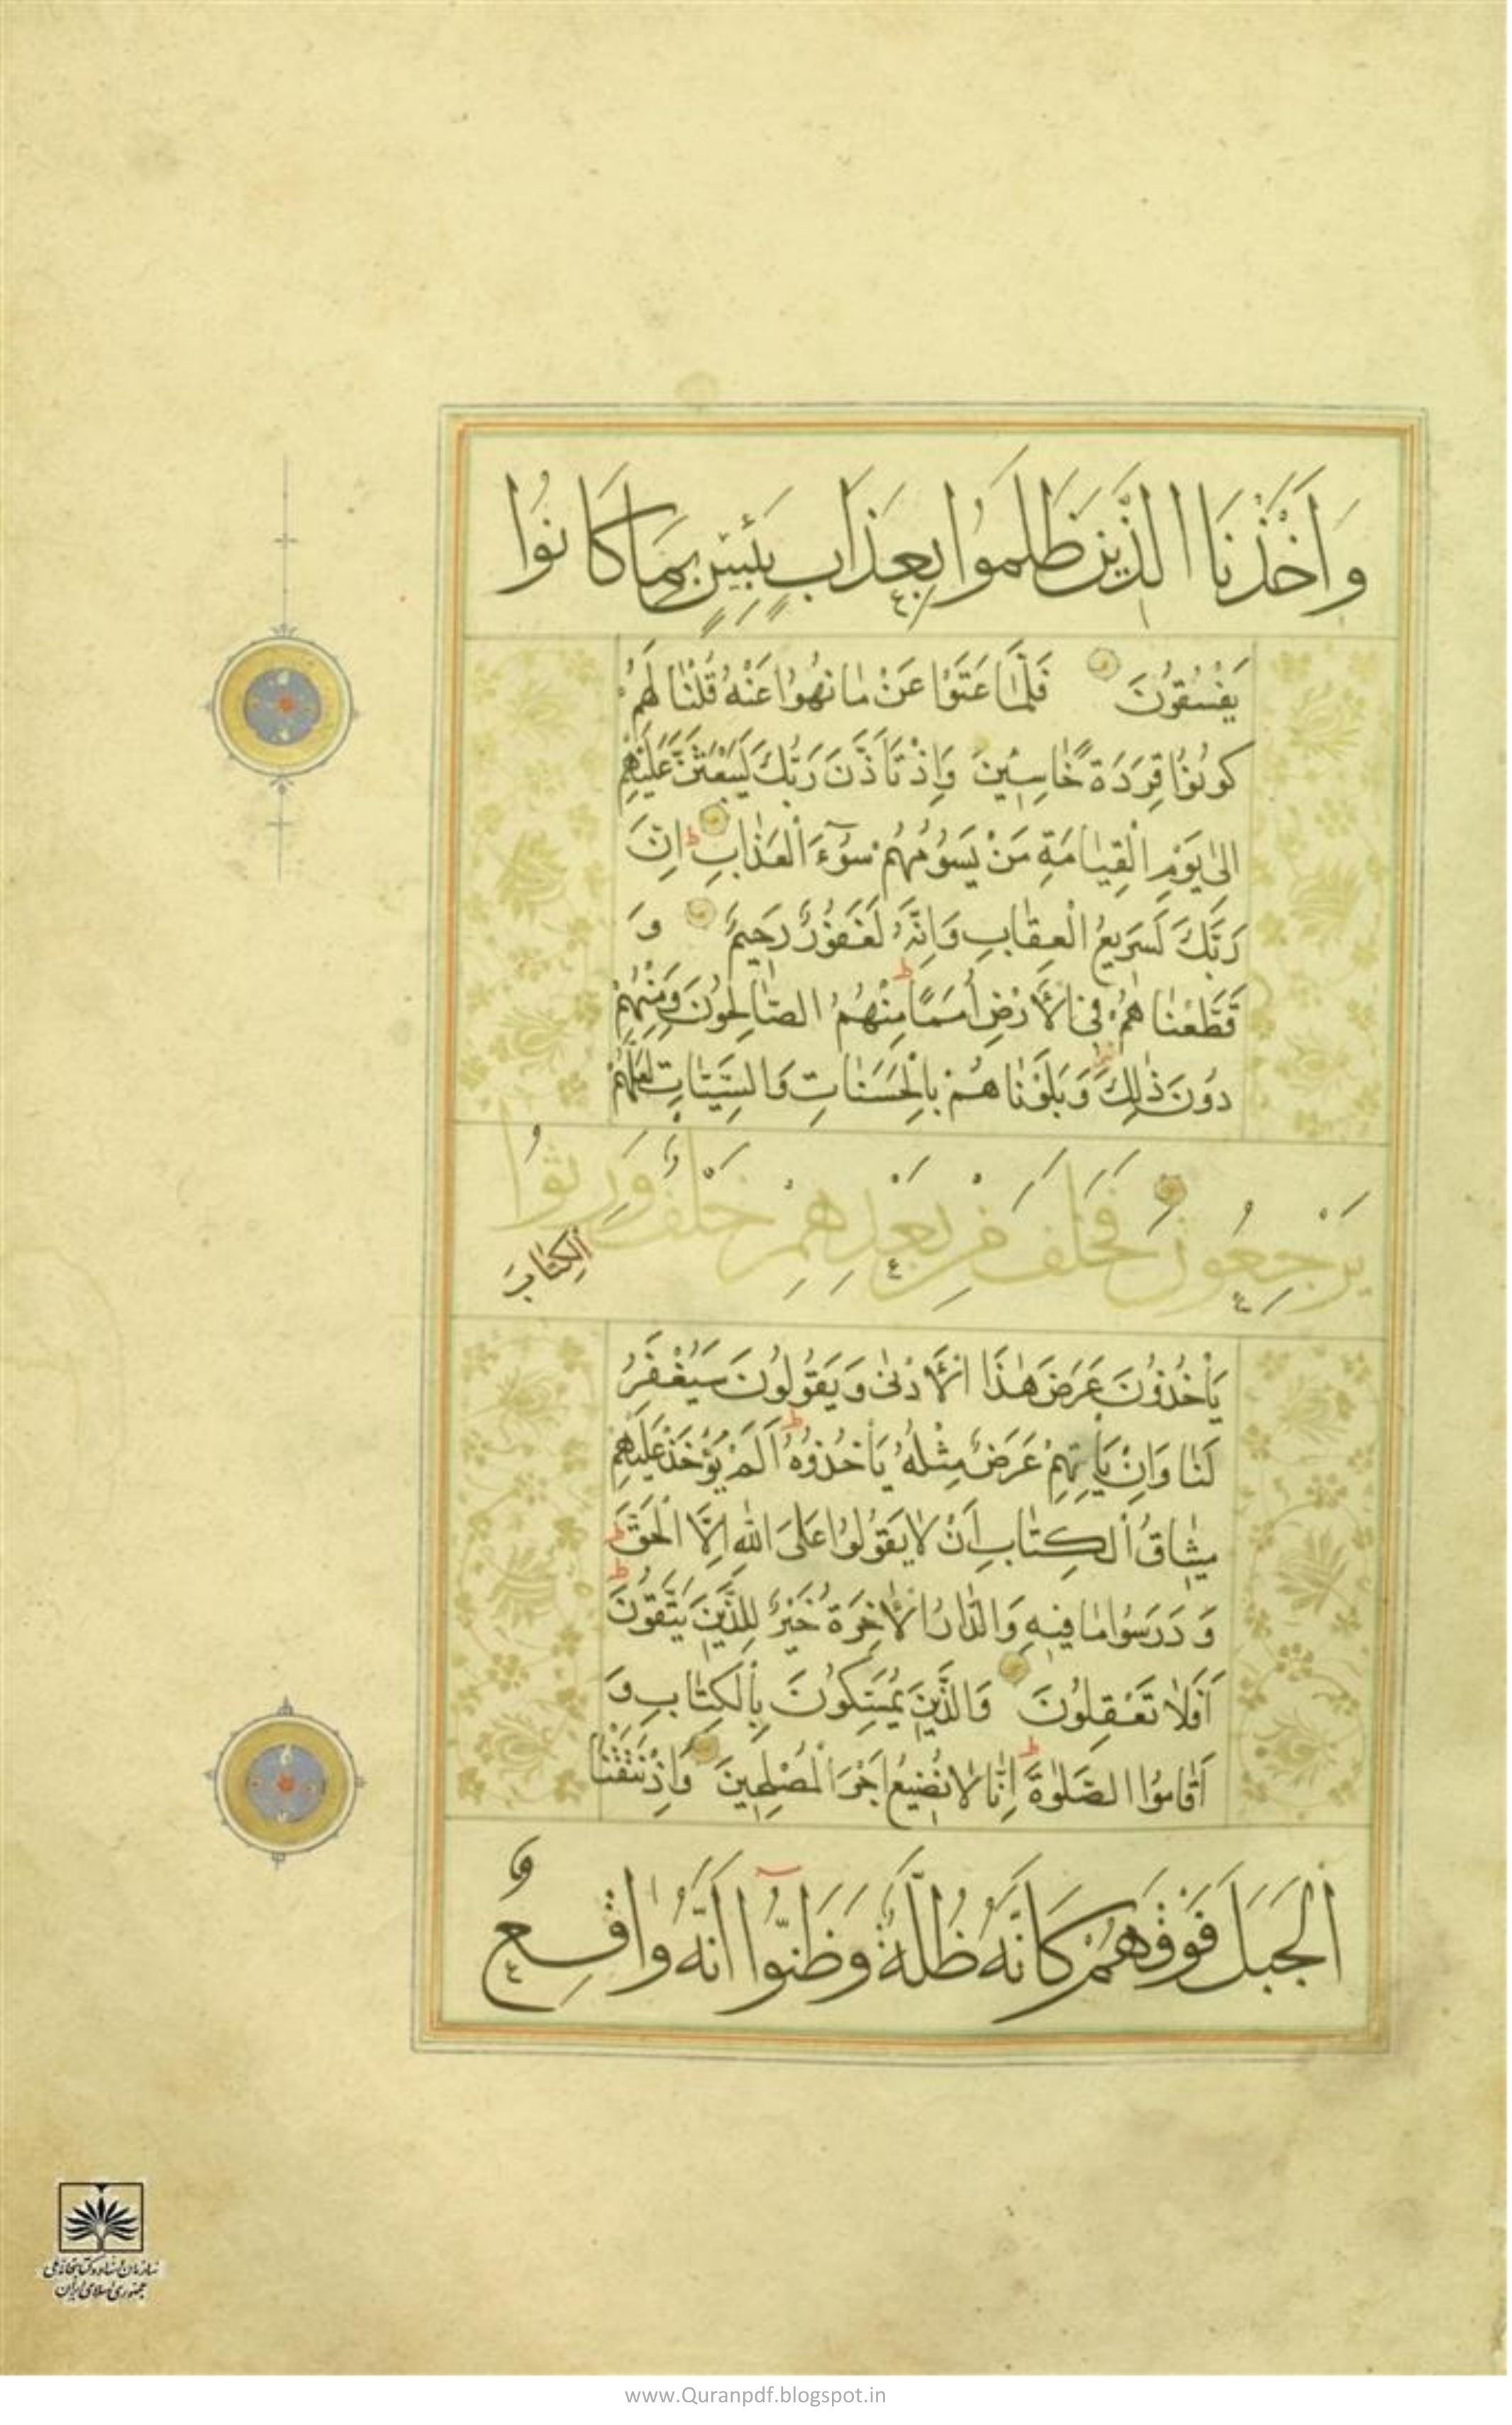 وَاَخَذْنَا الَّذِينَ ظَلَمُوا بِعَذَابٍ بَئِيسٍ بِمَا كَانُوا
يَفْسُقُونَ فَلَمَّا عَتَوْا عَنْ مَا نُهُوا عَنْهُ قُلْنَا لَهُمْ
كُونُوا قِرَدَةً خَاسِئِينَ وَاِذْ تَاَذَّنَ رَبُّكَ لَيَبْعَثَنَّ عَلَيْهِمْ
اِلىٰ يَوْمِ الْقِيَامَةِ مَنْ يَسُومُهُمْ سُوٓءَ الْعَذَابِ ط اِنَّ
رَبَّكَ لَسَرِيعُ الْعِقَابِ وَاِنَّهُ لَغَفُورٌ رَحِيمٌ وَ
قَطَّعْنَاهُمْ فِى الْاَرْضِ اُمَمًا ط مِنْهُمُ الصَّالِحُونَ وَمِنْهُمْ
دُونَ ذٰلِكَ وَبَلَوْنَاهُمْ بِالْحَسَنَاتِ وَالسَّيِّئَاتِ لَعَلَّهُمْ
يَرْجِعُونَ فَخَلَفَ مِنْ بَعْدِهِمْ خَلْفٌ وَرِثُوا
الْكِتَابَ
يَأْخُذُونَ عَرَضَ هٰذَا الْاَدْنىٰ وَيَقُولُونَ سَيُغْفَرُ
لَنَا وَاِنْ يَأْتِهِمْ عَرَضٌ مِثْلُهُ يَأْخُذُوهُ ط اَلَمْ يُؤْخَذْ عَلَيْهِمْ
مِيثَاقُ الْكِتَابِ اَنْ لَا يَقُولُوا عَلَى اللّٰهِ اِلَّا الْحَقَّ
وَدَرَسُوا مَا فِيهِ ط وَالدَّارُ الْاٰخِرَةُ خَيْرٌ لِلَّذِينَ يَتَّقُونَ ط
اَفَلَا تَعْقِلُونَ وَالَّذِينَ يُمَسِّكُونَ بِالْكِتَابِ وَ
اَقَامُوا الصَّلٰوةَ ط اِنَّا لَا نُضِيعُ اَجْرَ الْمُصْلِحِينَ وَاِذْ نَتَقْنَا
الْجَبَلَ فَوْقَهُمْ كَاَنَّهُ ظُلَّةٌ وَظَنُّوٓا اَنَّهُ وَاقِعٌ
سازمان اسناد و کتابخانه ملی
جمهوری اسلامی ایران
www.Quranpdf.blogspot.in